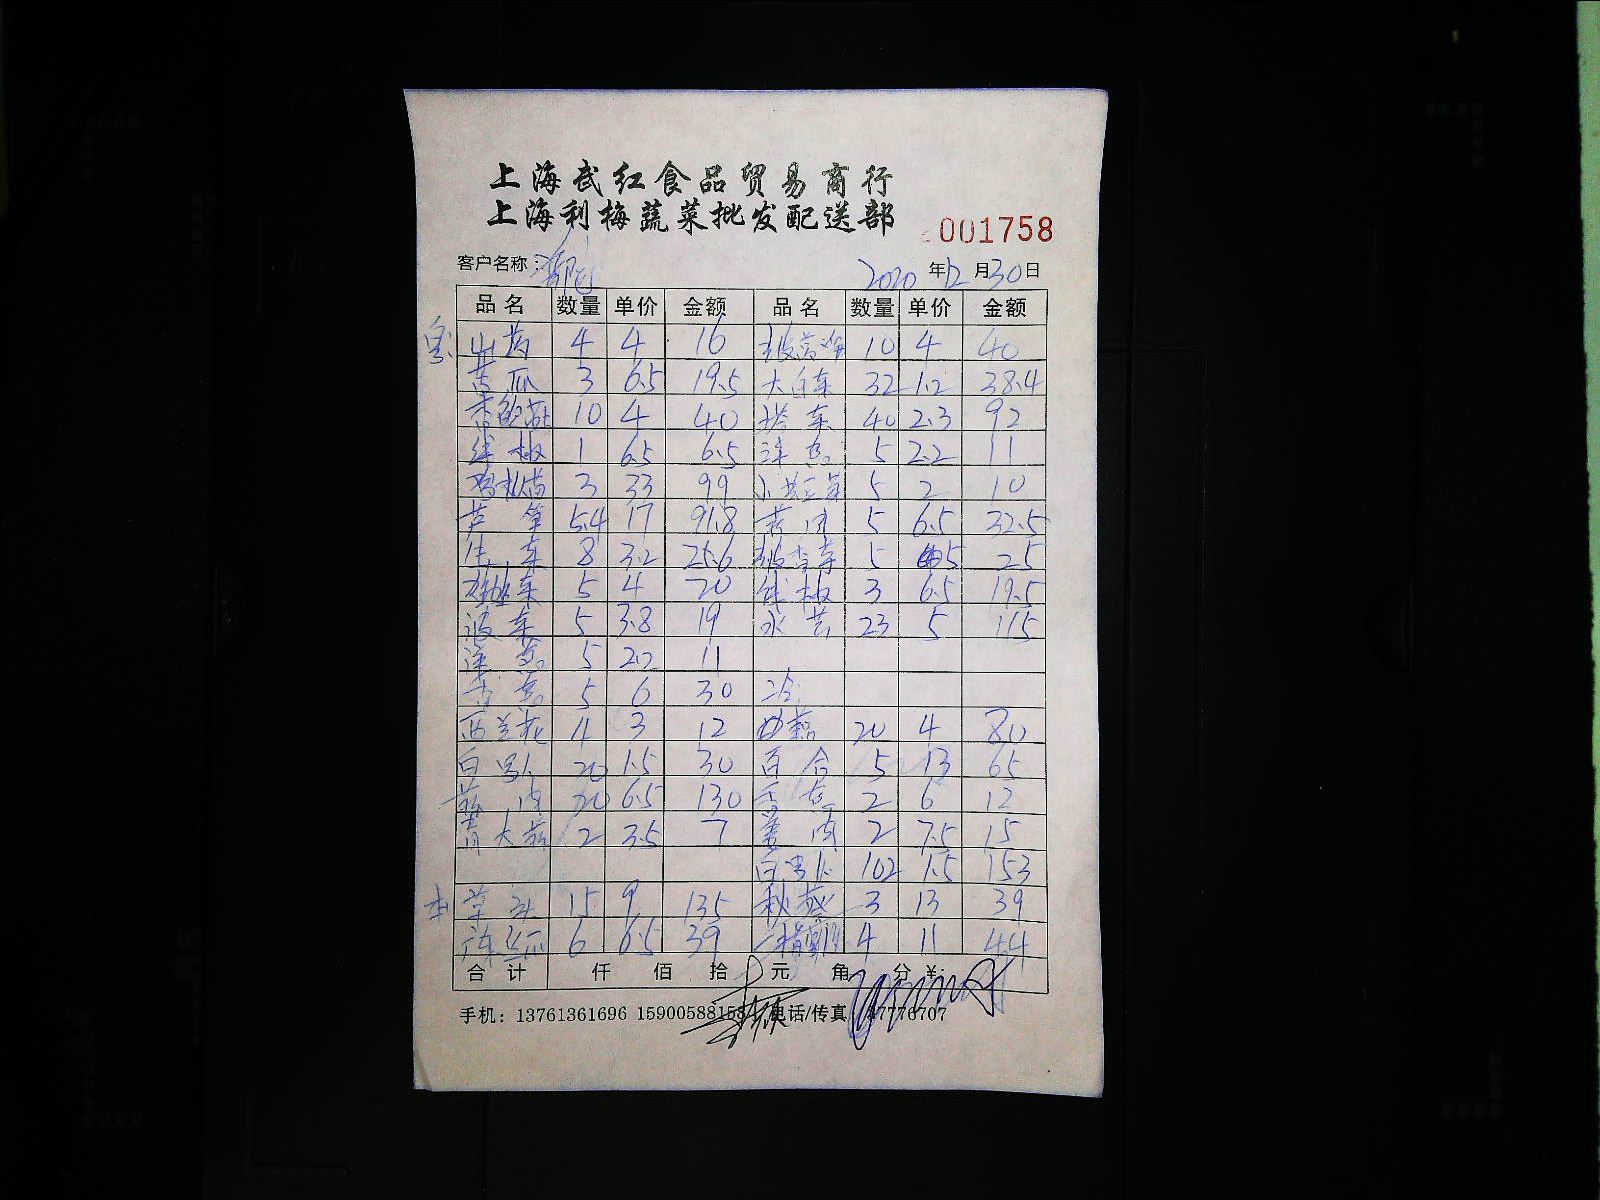 上海武红食品贸易商行
上海利梅蔬菜批发配送部
001758
客户名称：
2020年12月30日
品名 数量 单价 金额 品名 数量 单价 金额
山药 4 4 16 10 4 40
黄瓜 3 6.5 19.5 大白菜 32 1.2 38.4
10 4 40 塔菜 40 2.3 92
线椒 1 6.5 6.5 洋葱 5 2.2 11
鸡枞菌 3 33 99 5 2 10
芦笋 5.4 17 91.8 5 6.5 32.5
生菜 8 3.2 25.6 5 5 25
菜 5 4 20 线椒 3 6.5 19.5
菠菜 5 3.8 19 23 5 115
洋葱 5 2.2 11
香葱 5 6 30
西兰花 4 3 12 20 4 80
白 20 1.5 30 百合 5 13 65
20 6.5 130 香葱 2 6 12
青大蒜 2 3.5 7 姜肉 2 7.5 15
白 102 1.5 153
草头 15 9 135 秋葵 3 13 39
6 6.5 39 4 11 44
合计 仟 佰 拾 元 角 分 ¥:
手机：13761361696 15900588158 电话/传真 67776707